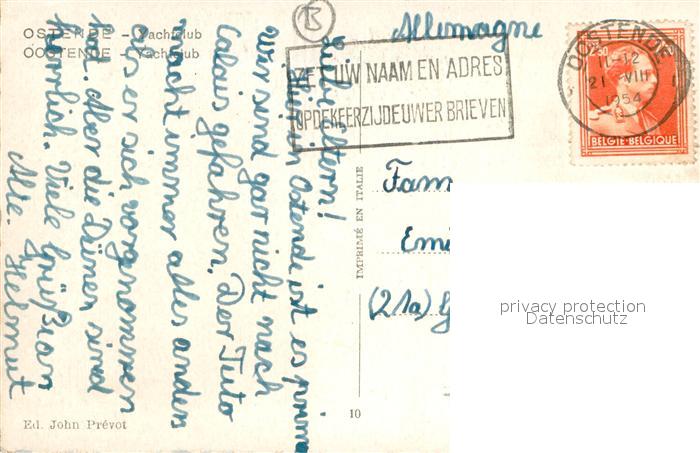 OSTENDE – Yachtclub
OOSTENDE – Yachtclub
B
Allemagne
ZET UW NAAM EN ADRES
OP DE KEERZIJDE UWER BRIEVEN
OOSTENDE
11-12
21 VIII
1954
2F50
BELGIE-BELGIQUE
Liebe Eltern!
Hier in Ostende ist es prima
Wir sind gar nicht nach
Calais gefahren. Der Tuto
macht immer alles anders
als er sich vorgenommen
hat. Aber die Dünen sind
herrlich. Viele Grüße an
Alte. Helmut
IMPRIMÉ EN ITALIE
Fam
Emi
(21a) G
privacy protection
Datenschutz
10
Ed. John Prévot